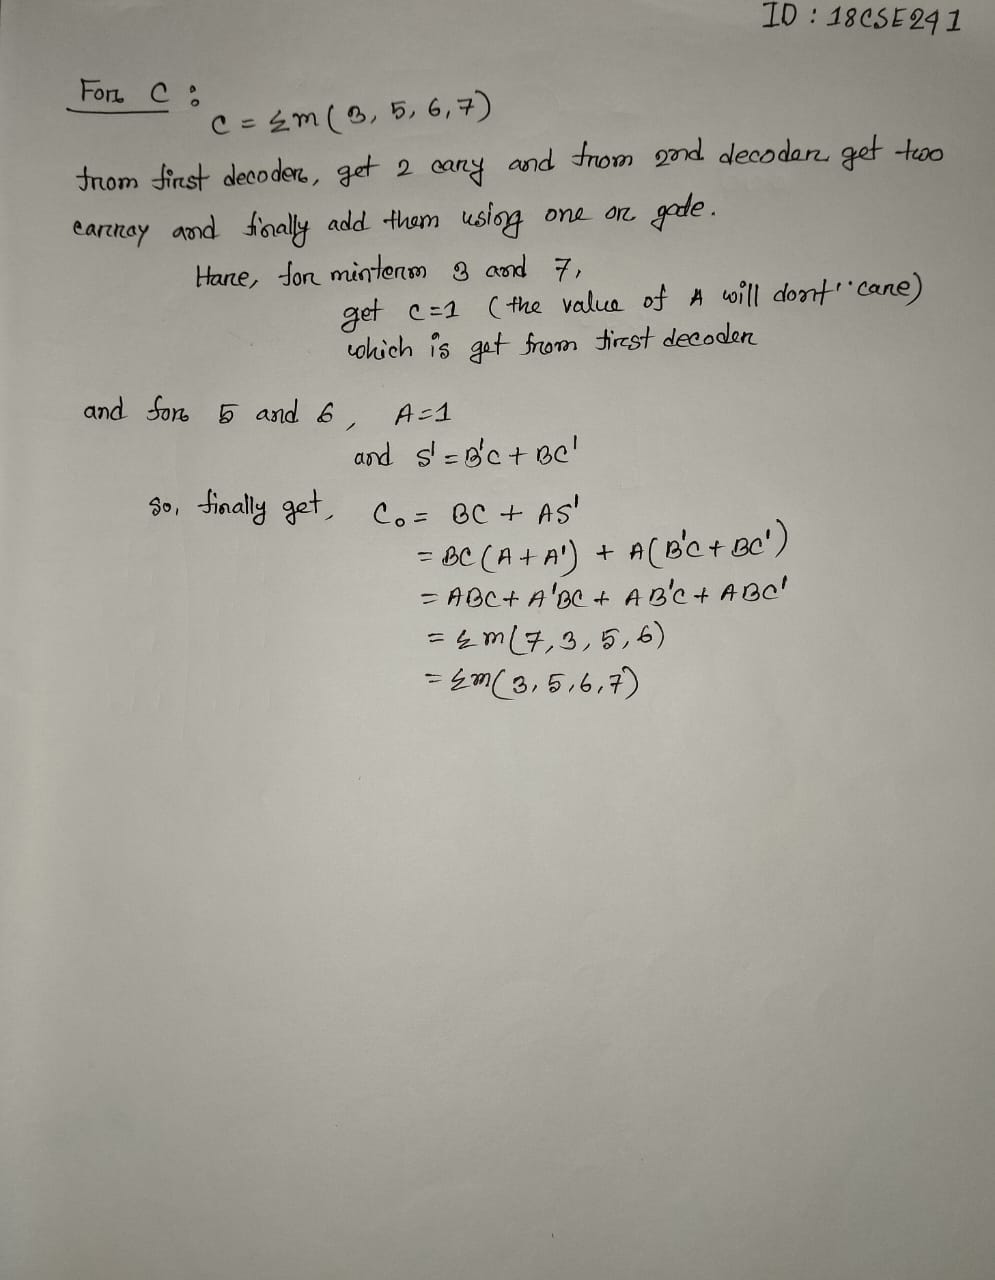 ID : 18CSE241
For C :
C = Σm (3, 5, 6, 7)
from first decoder, get 2 cary and from 2nd decoder get two
carray and finally add them using one or gade.
Hare, for minterm 3 and 7,
get C=1 (the value of A will dont'' care)
which is get from first decoder
and for 5 and 6, A=1
and S' = B'C + BC'
So, finally get, C₀ = BC + AS'
= BC (A + A') + A(B'C + BC')
= ABC + A'BC + AB'C + ABC'
= Σm(7, 3, 5, 6)
= Σm(3, 5, 6, 7)